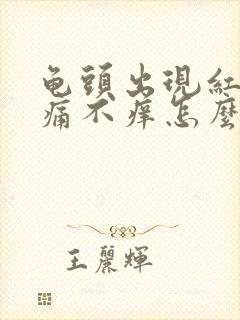 龟頭出現紅
痛不痒怎麼
王麗輝